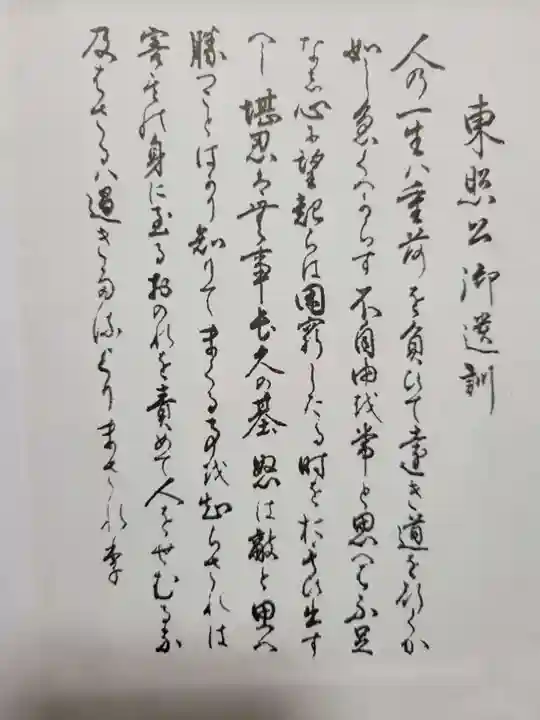 東照公御遺訓
人の一生ハ重荷を負ひて遠き道を行くか
如し急くへからす不自由を常と思へハ不足
なし心に望起らは困窮したる時をおもひ出す
へし堪忍は無事長久の基怒は敵と思へ
勝つことはかり知りてまくる事を知らされは
害其の身に至るおのれを責めて人をせむるな
及はさるハ過きたるよりまされり